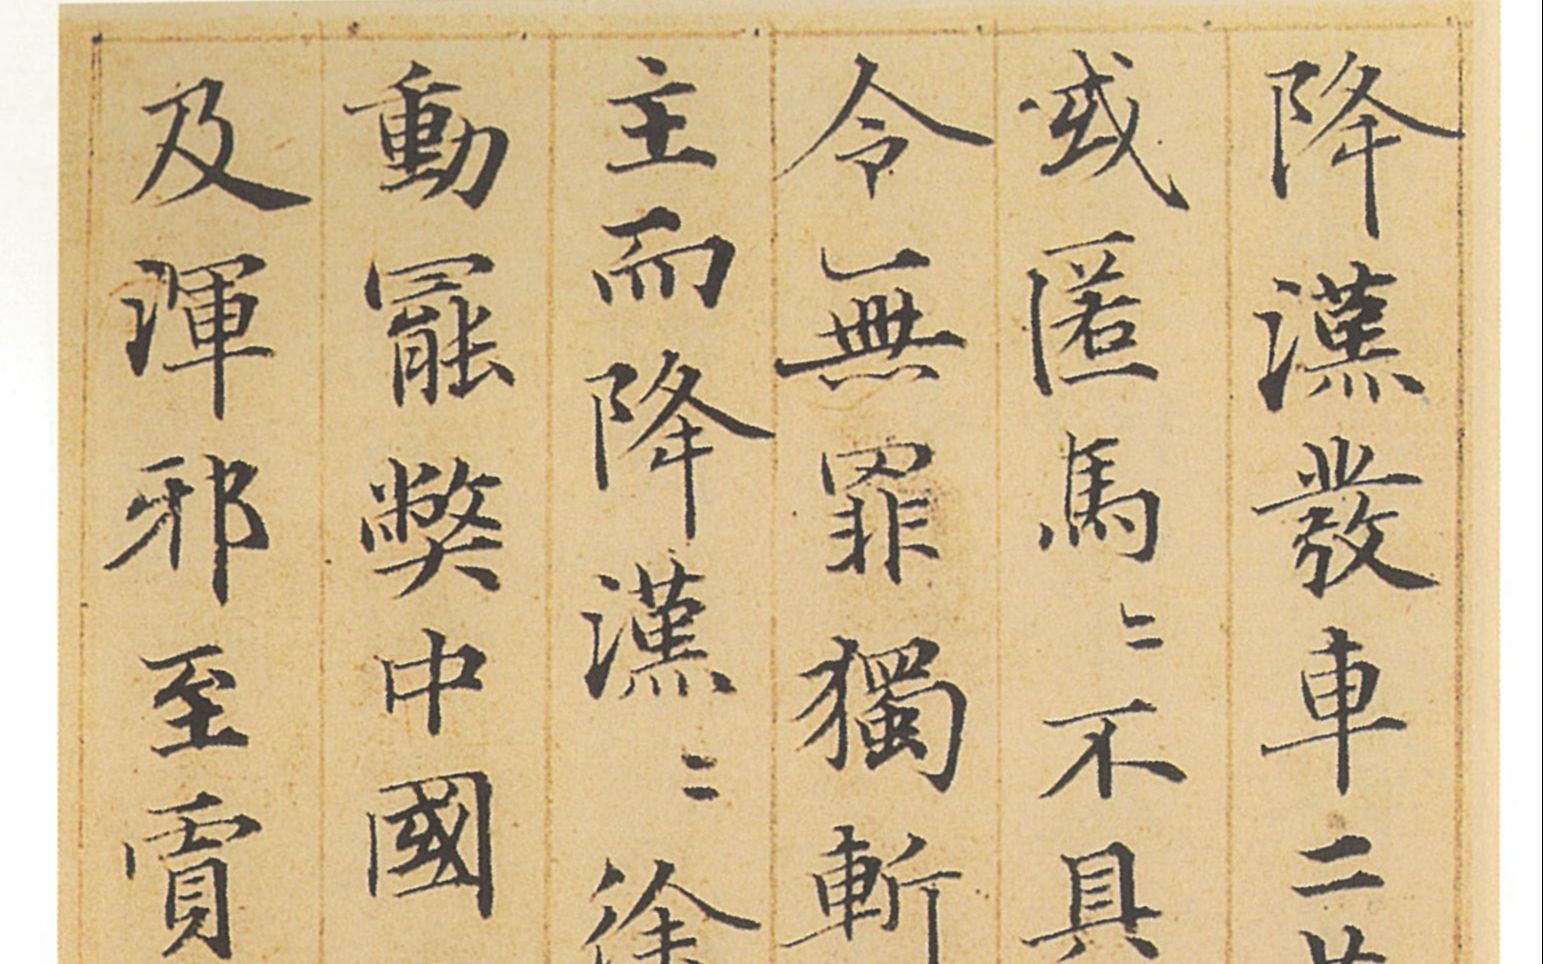 降漢發車二
或匿馬〻不具
令無罪獨斬
主而降漢〻徐
動罷獘中國
及渾邪至賈